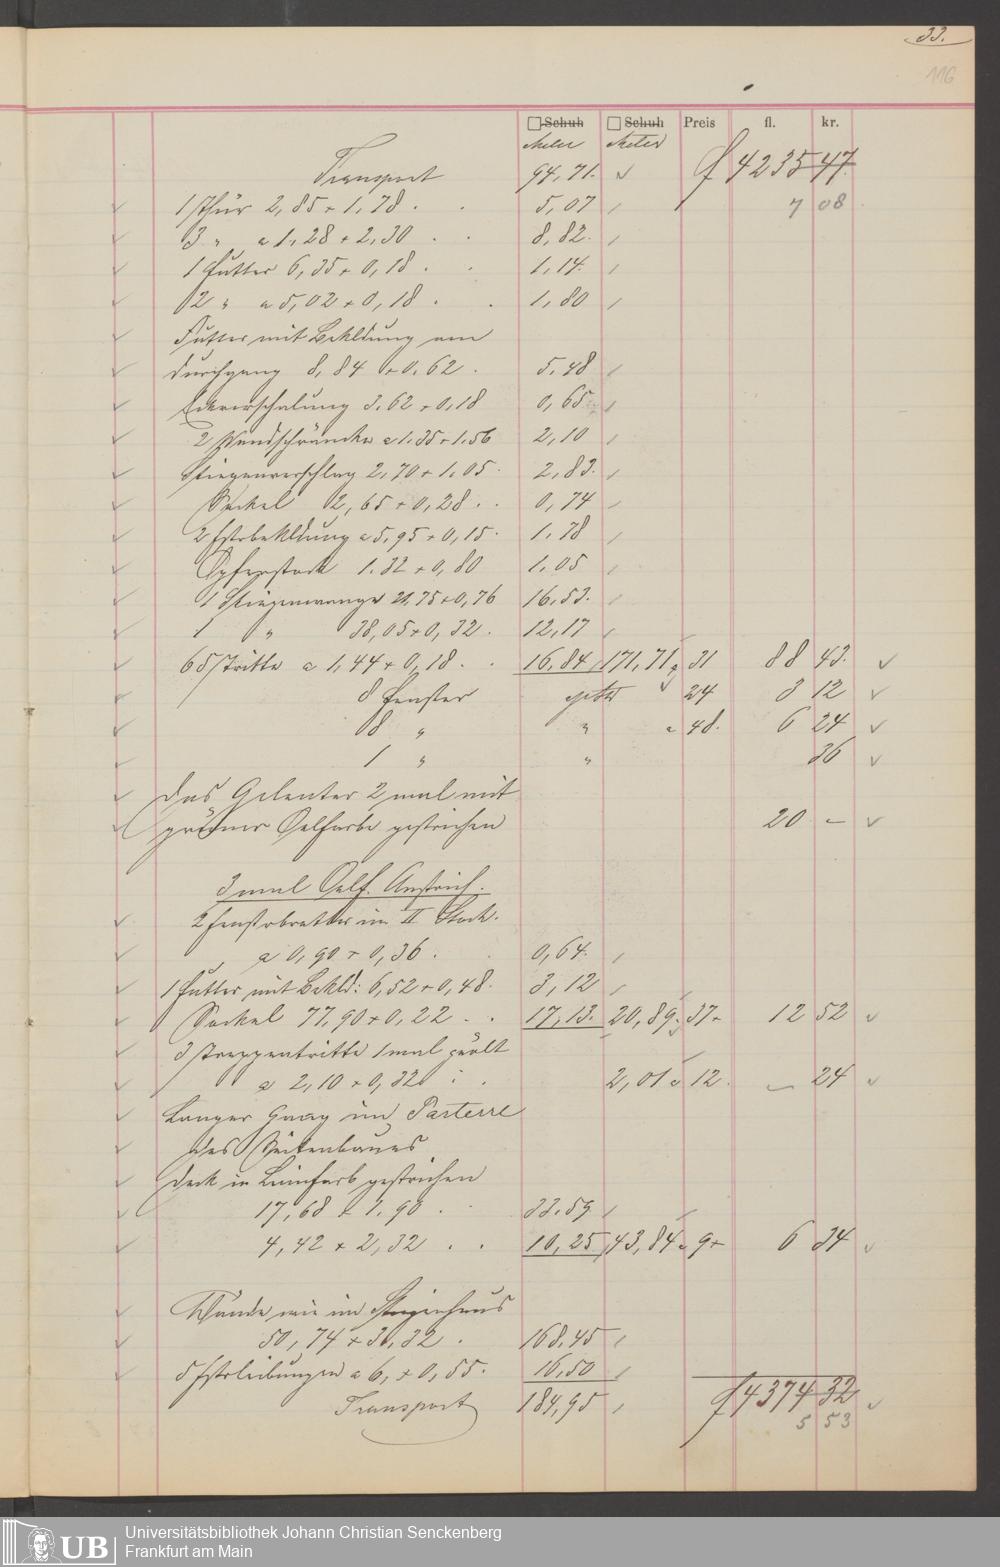 33.
116
□ Schuh □ Schuh Preis fl. kr.
Meter Meter
Transport 94,71. f 4235 47
7 08
1 Thür 2,85 + 1,78 . . 5,07
3 " a 1,28 + 2,30 . . 8,82.
1 Futter 6,35 + 0,18 . . 1,14.
2 " a 5,02 + 0,18 . . 1,80
Futter mit Bekldung am
Durchgang 8,84 + 0,62 . 5,48
Eckverschalung 3,62 + 0,18 0,65
2 Wandschränke a 1,35 + 1,56 2,10
Stiegenverschlag 2,70 + 1,05 . 2,83.
Sockel 2,65 + 0,28 . . 0,74
2 Fstrbekldung a 5,95 + 0,15 . 1,78
Opferstock 1.32 + 0,80 1,05
1 Stiegenwange 21,75 + 0,76 16,53.
1 " 38,05 + 0,32 . 12,17
65 Tritte a 1,44 + 0,18 . . 16,84 171,71 a 31 88 43.
8 Fenster 24 3 12
8 " " a 48. 6 24
1 " " 36
Das Gelenter 2 mal mit
grüner Oelfarbe gestrichen 20 –
3 mal Oelf. Anstrich.
2 Fenstrbretter im II Stock.
a 0,90 + 0,36 . . 0,64.
1 Futter mit Bekld: 6,52 + 0,48 . 3,12
Sockel 77,90 + 0,22 . . 17,13. 20,89. 37 12 52
3 Treppentritte 1 mal geölt
a 2,10 + 0,32 . . 2,01 a 12. – 24
Langer Gang im Parterre
des Seitenbaues
Deck in Leimfarb gestrichen
17,68 + 1.90 . . 33.59
4,42 + 2,32 . . 10,25 43,84 a 9 6 34
Wände wie im Stiegenhaus
50,74 + 3,32 . 168,45
5 Fstrleibungen a 6, + 0,55 . 16,50
Transport 184,95 f 4374 32
5 53
UB
Universitätsbibliothek Johann Christian Senckenberg
Frankfurt am Main